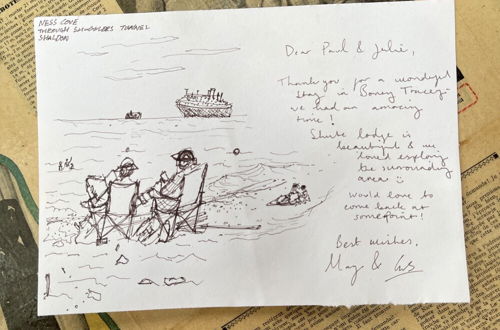 NESS COVE
THROUGH SMUGGLERS TUNNEL
SHALDON
Dear Paul & Julie,
Thank you for a wonderful
stay in Bovey Tracey -
we had an amazing
time!
Shute lodge is
beautiful & we
loved exploring
the surrounding
area
would love to
come back at
somepoint!
Best wishes,
May &